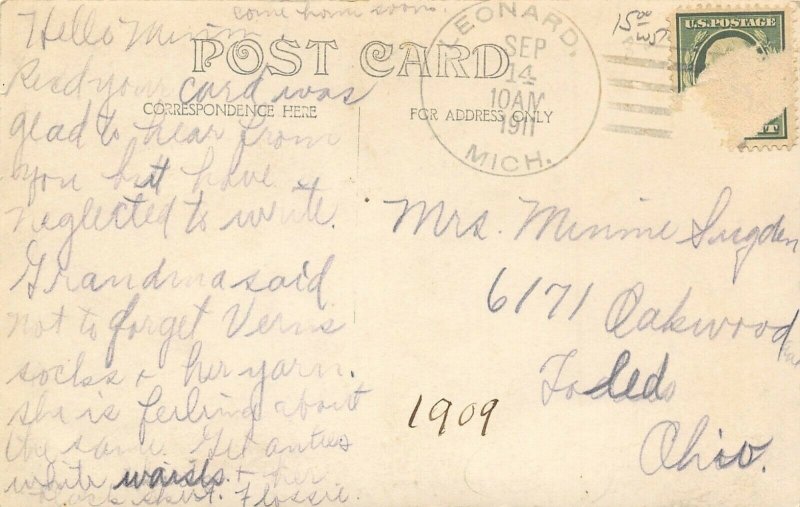 come home soon.
Hello Minnie
Recd your card was
glad to hear from
you but have
neglected to write.
Grandma said
not to forget Verns
socks + her yarn.
she is feeling about
the same. Get anties
white waists + her
black skirt. Flossie.
POST CARD
CORRESPONDENCE HERE
FOR ADDRESS ONLY
LEONARD,
SEP
14
10AM
1911
MICH.
15.00
U.S. POSTAGE
Mrs. Minnie Sugden
6171
Oakwood
Toledo
Ohio.
1909